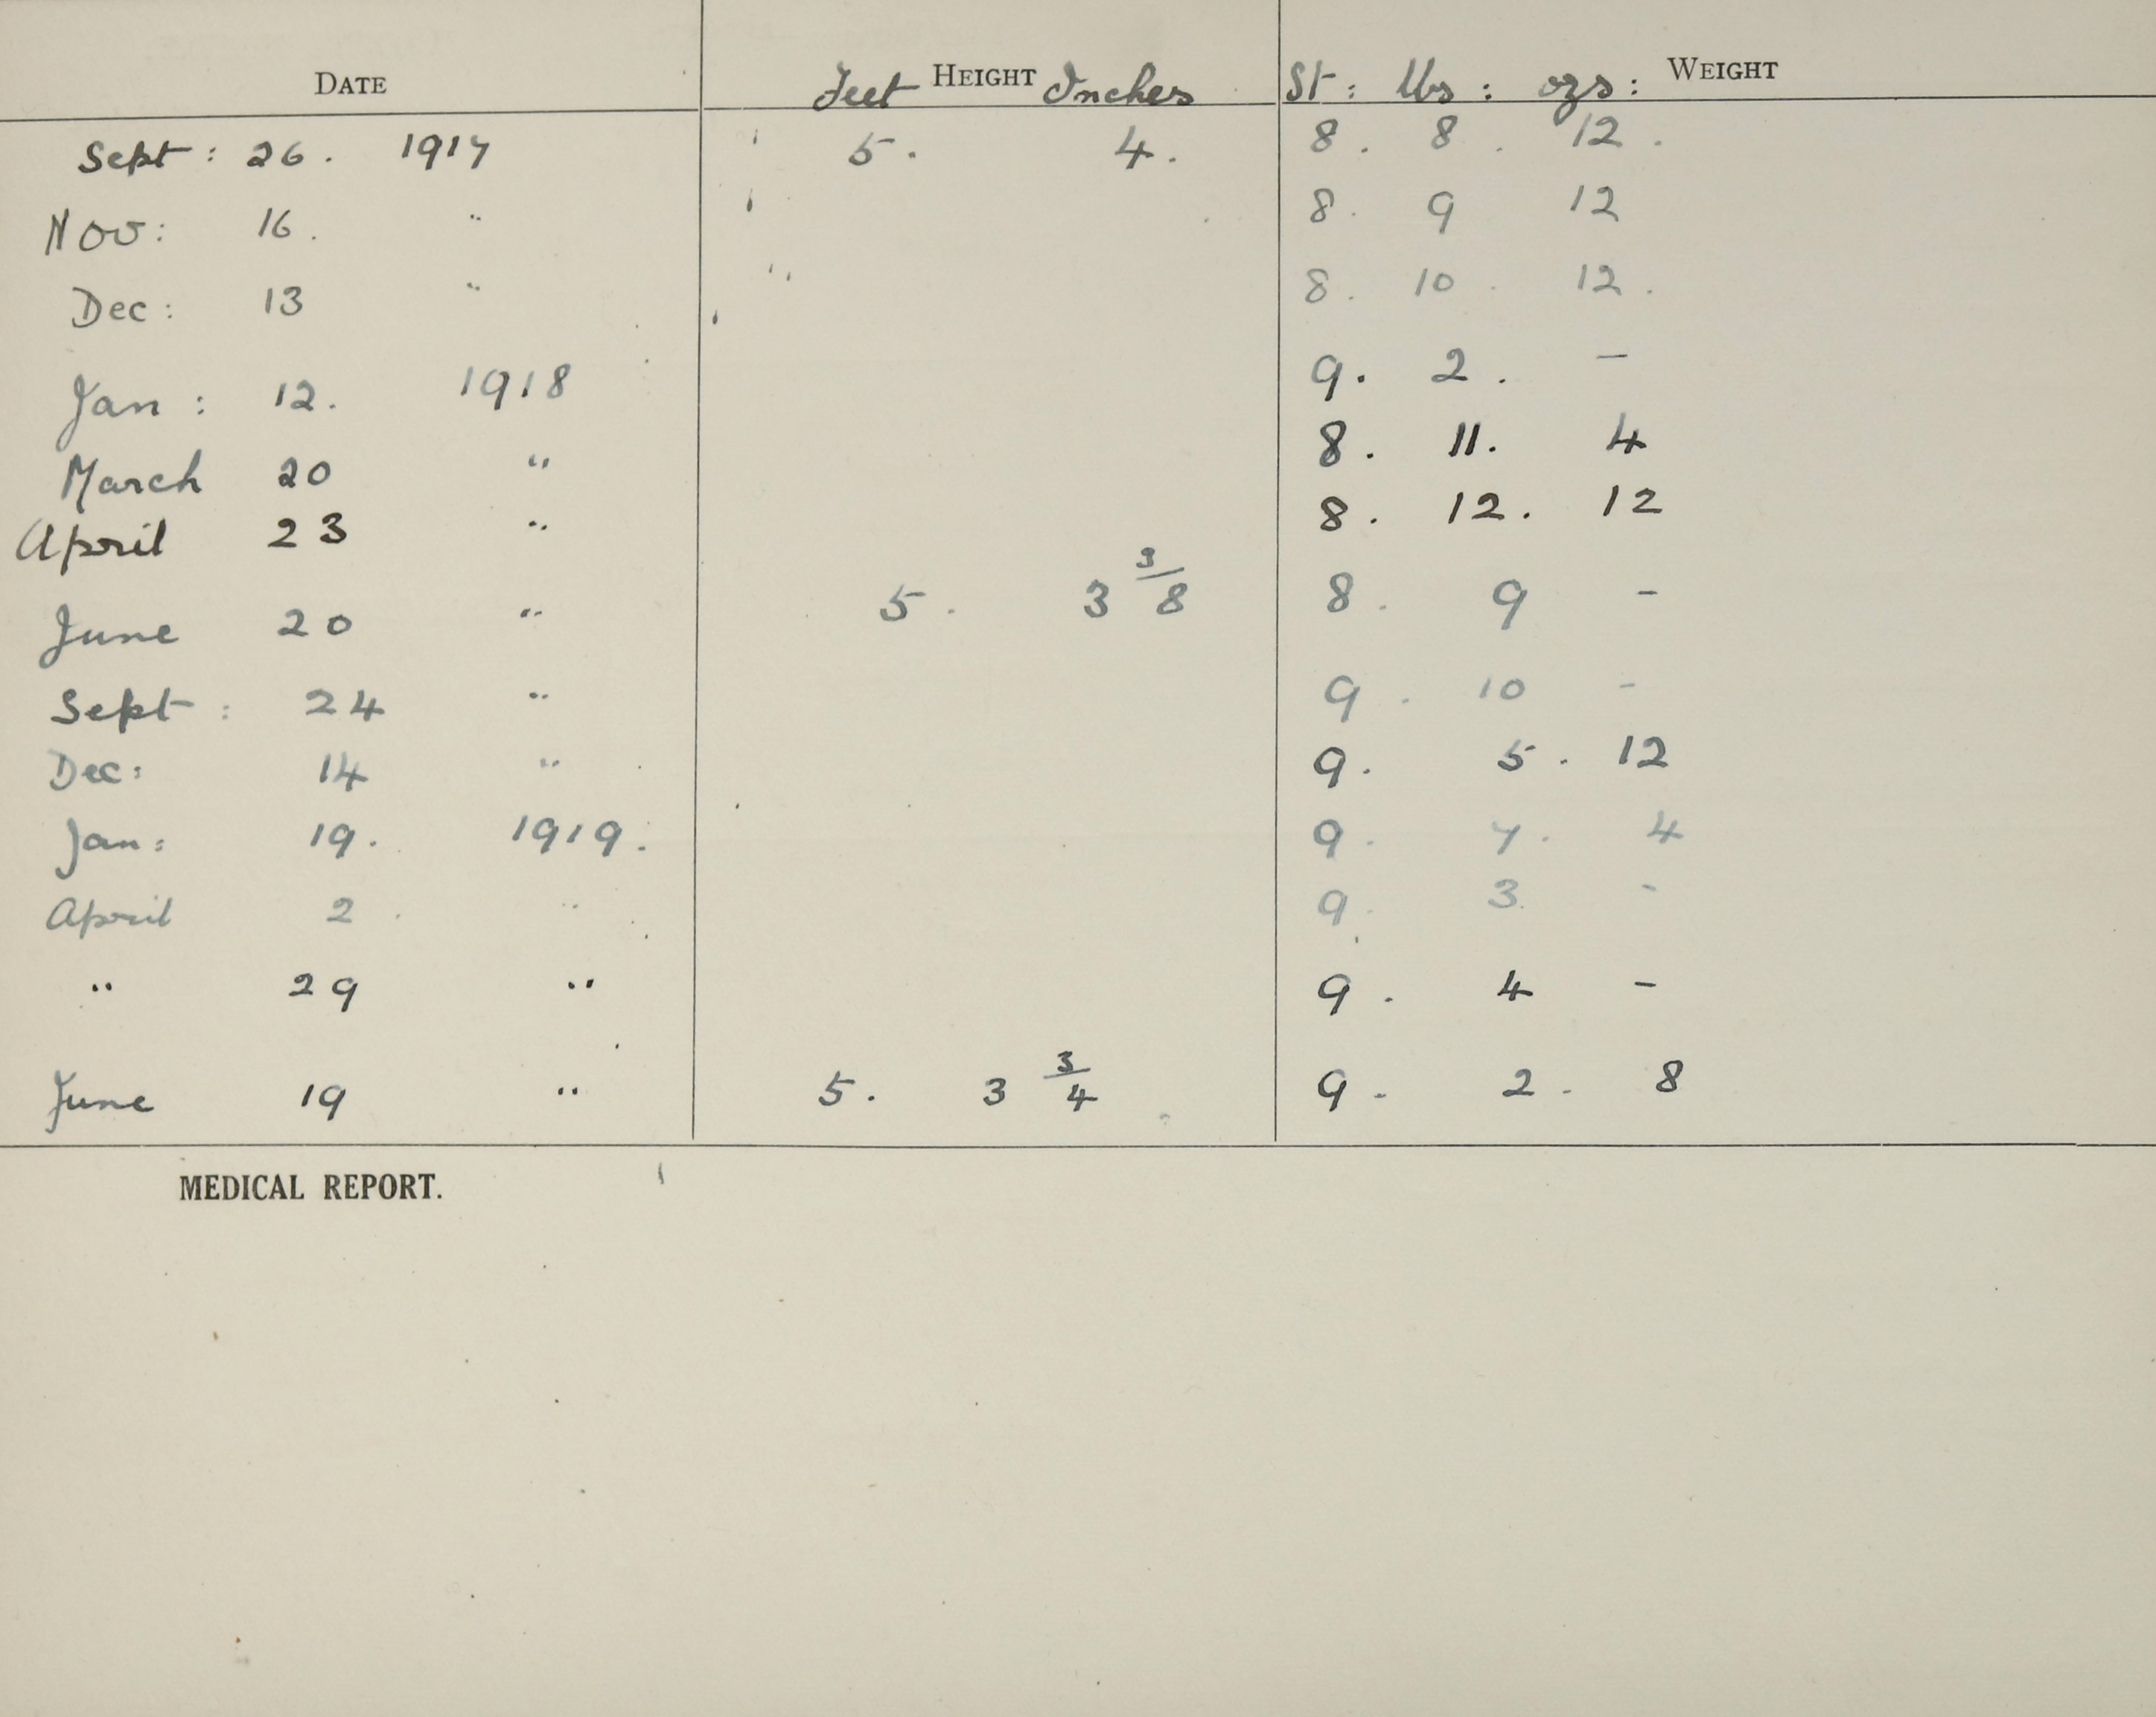 DATE Feet HEIGHT Inches St: lbs: ozs: WEIGHT
Sept: 26. 1917 5. 4. 8. 8. 12.
Nov: 16. " 8. 9 12
Dec: 13 " 8. 10. 12.
Jan: 12. 1918 9. 2. –
March 20 " 8. 11. 4
April 23 " 8. 12. 12
June 20 " 5. 3 3/8 8. 9 –
Sept: 24 " 9. 10 –
Dec: 14 " 9. 5. 12
Jan: 19. 1919. 9. 7. 4
April 2. " 9. 3. –
" 29 " 9. 4 –
June 19 " 5. 3 3/4 9. 2. 8
MEDICAL REPORT.